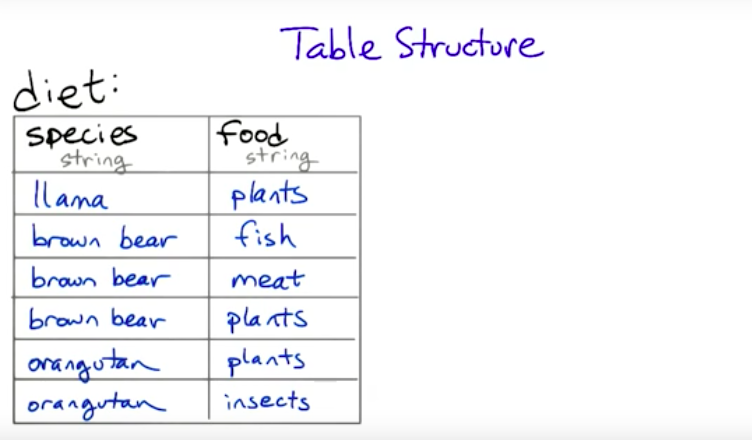 Table Structure
diet:
species food
string string
llama plants
brown bear fish
brown bear meat
brown bear plants
orangutan plants
orangutan insects